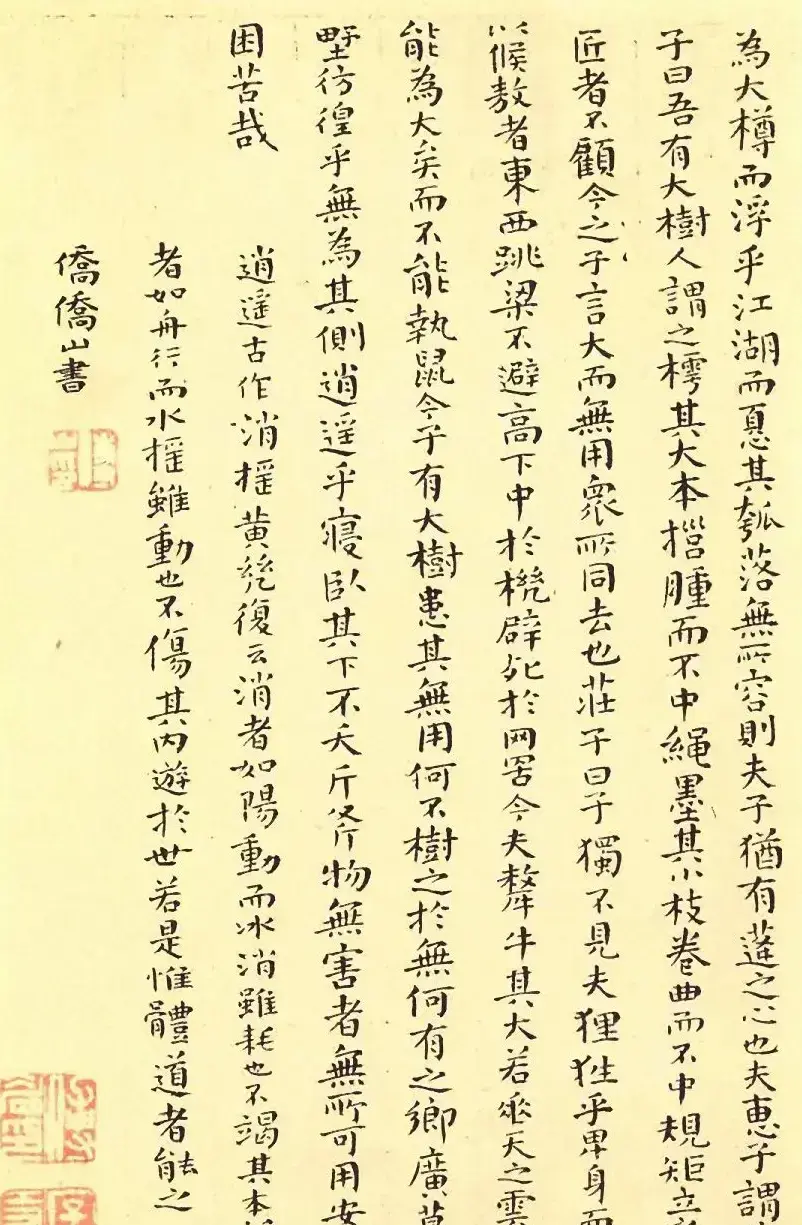 為大樽而浮乎江湖而憂其瓠落無所容則夫子猶有蓬之心也夫惠子謂
子曰吾有大樹人謂之樗其大本擁腫而不中繩墨其小枝卷曲而不中規矩立
匠者不顧今之子言大而無用衆所同去也莊子曰子獨不見夫狸狌乎卑身而
以候敖者東西跳梁不避高下中於機辟死於网罟今夫斄牛其大若垂天之雲
能為大矣而不能執鼠今子有大樹患其無用何不樹之於無何有之鄉廣莫
壄彷徨乎無為其側逍遥乎寝臥其下不夭斤斧物無害者無所可用安
困苦哉
逍遥古作消摇黄几復云消者如陽動而冰消雖耗也不竭其本
者如舟行而水摇雖動也不傷其内遊於世若是惟體道者能之
僑僑山書